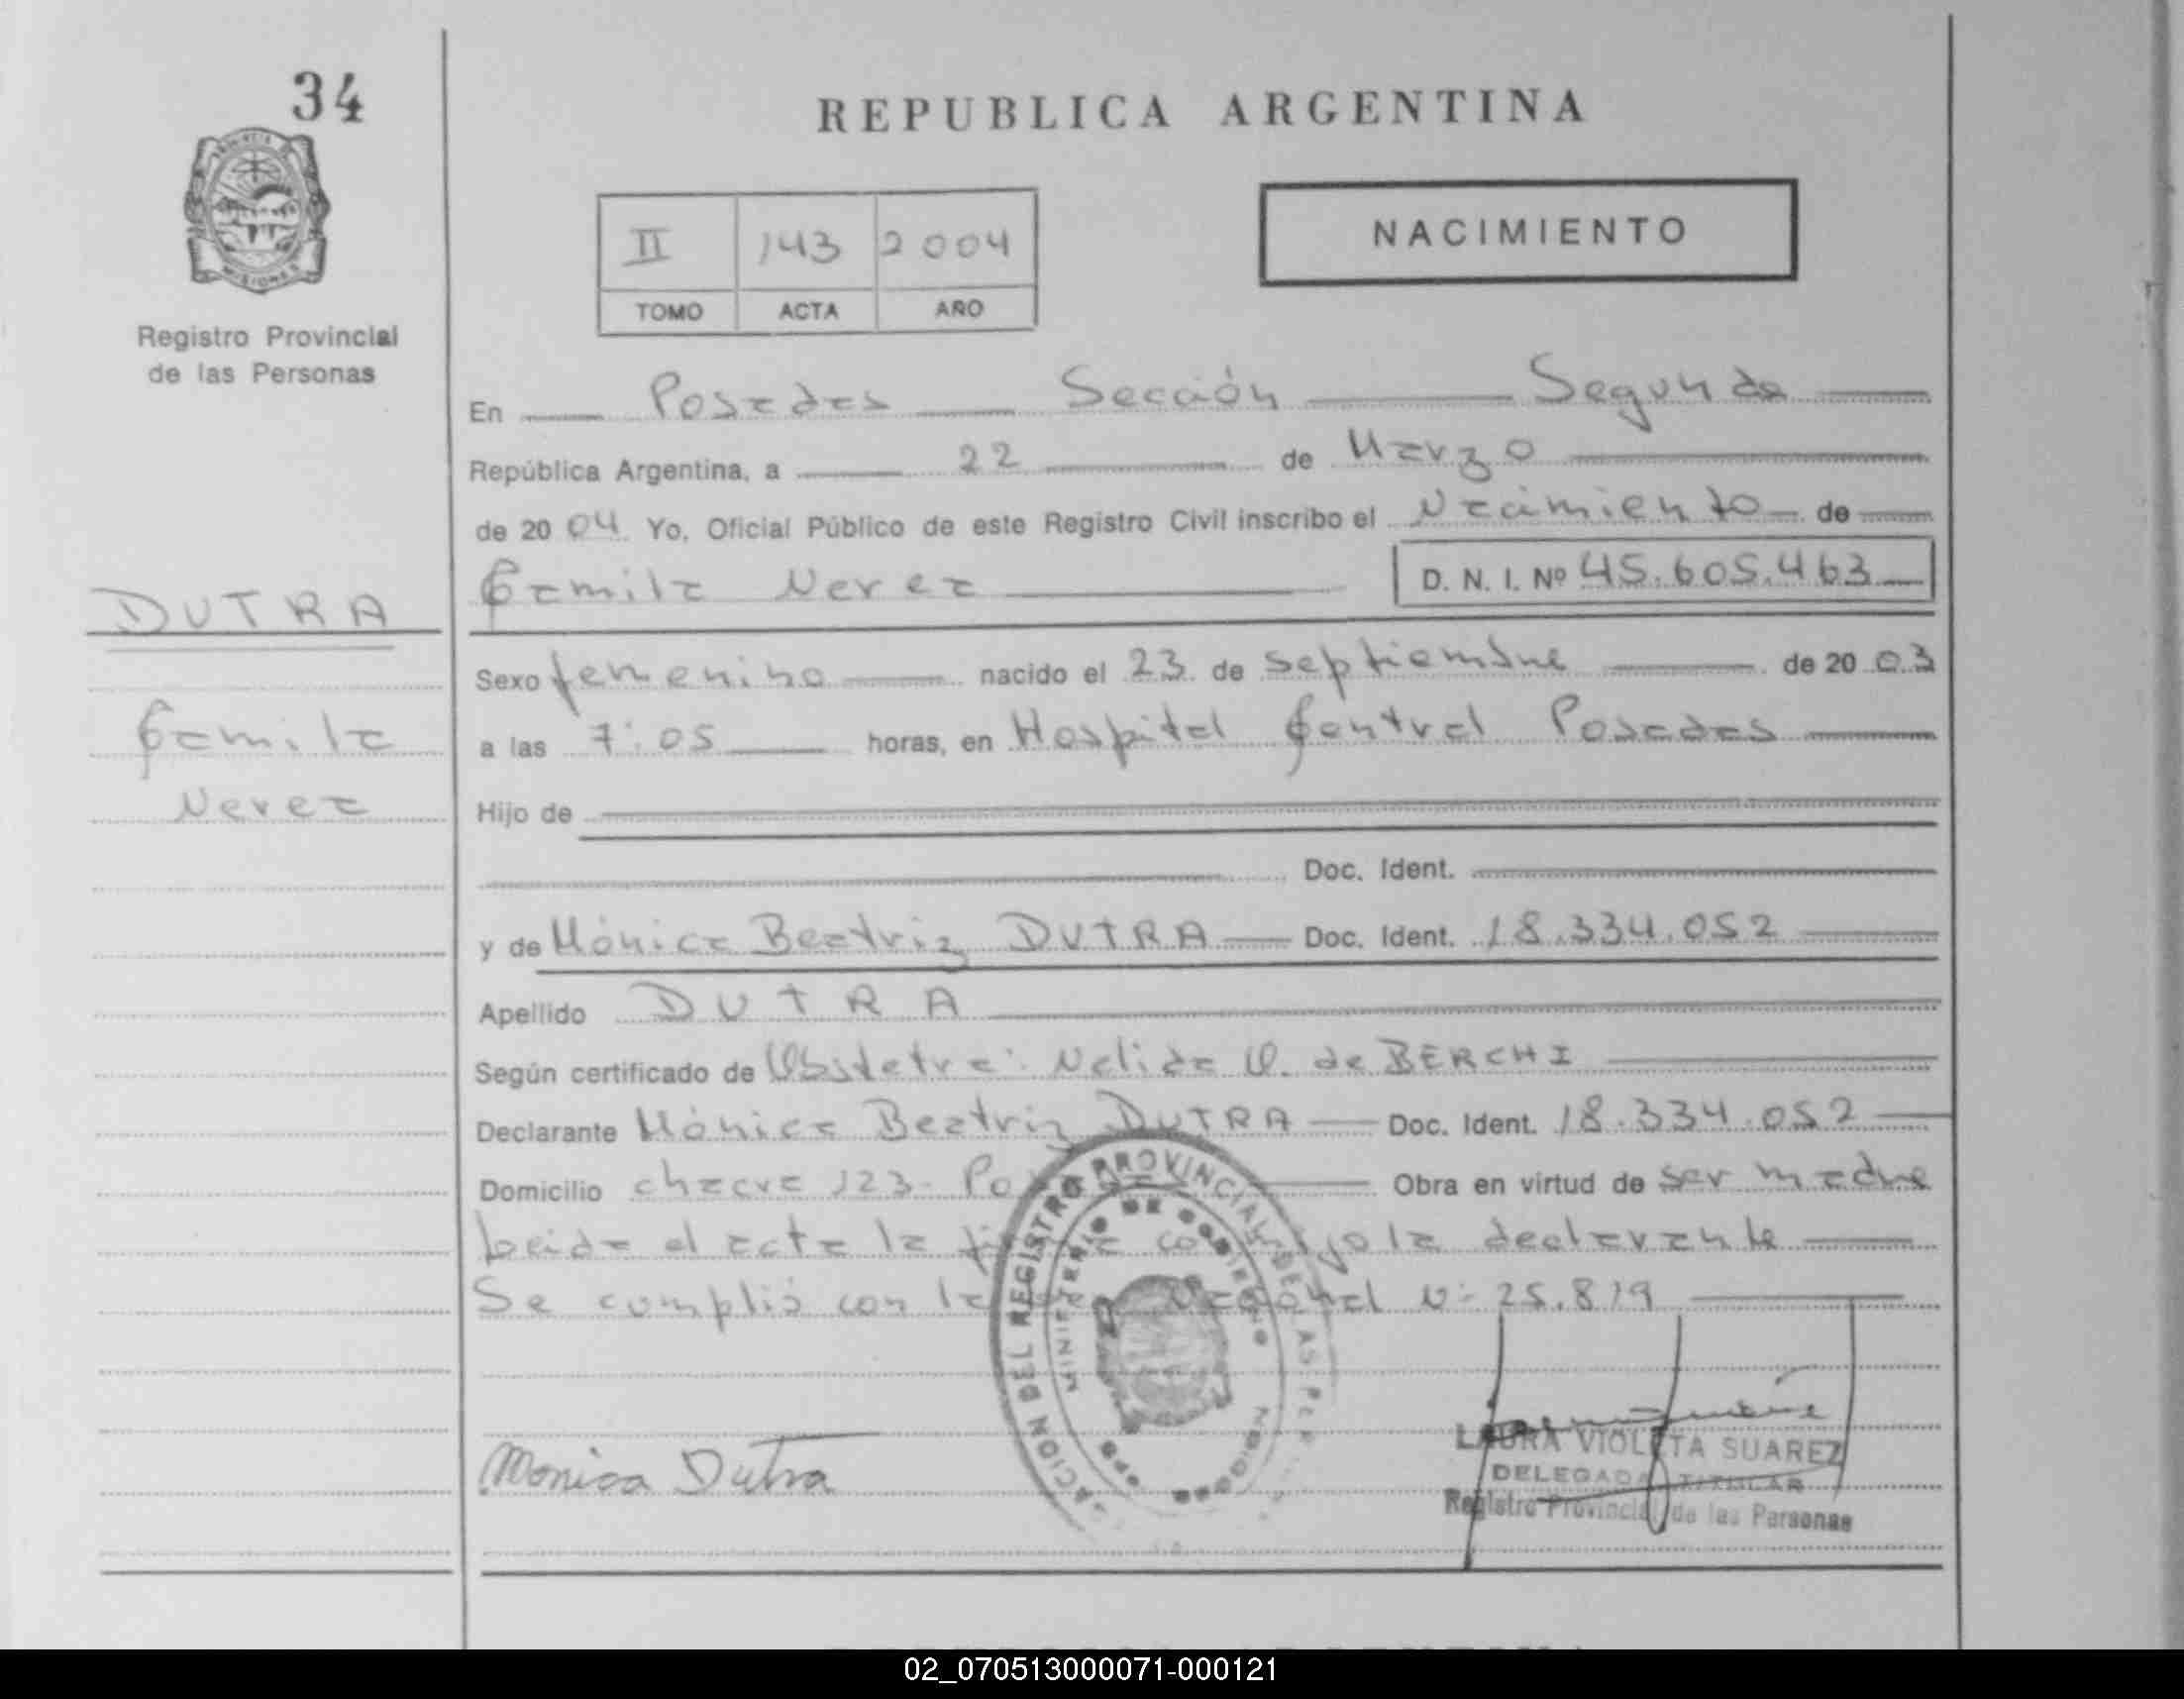 34
REPUBLICA ARGENTINA
PROVINCIA DE
MISIONES
Registro Provincial
de las Personas
II 143 2004
TOMO ACTA AÑO
NACIMIENTO
En Posadas Sección Segunda
República Argentina, a 22 de Marzo
de 2004 Yo, Oficial Público de este Registro Civil inscribo el Nacimiento de
Camila Nerea D. N. I. Nº 45.605.463
DUTRA
Camila
Nerea
Sexo femenino nacido el 23 de septiembre de 2003
a las 7:05 horas, en Hospital Central Posadas
Hijo de
Doc. Ident.
y de Mónica Beatriz DUTRA Doc. Ident. 18.334.052
Apellido DUTRA
Según certificado de Obstetra: Nelida V. de BERCHI
Declarante Mónica Beatriz DUTRA Doc. Ident. 18.334.052
Domicilio chacra 123- Obra en virtud de ser madre
Leida el acta la declarante
Se cumplió con la Nacional Nº 25.819
DEL REGISTRO PROVINCIAL DE LAS PER
MINISTERIO DE GOBIERNO
Monica Dutra
LAURA VIOLETA SUAREZ
DELEGADA TITULAR
Registro Provincial de las Personas
02_070513000071-000121